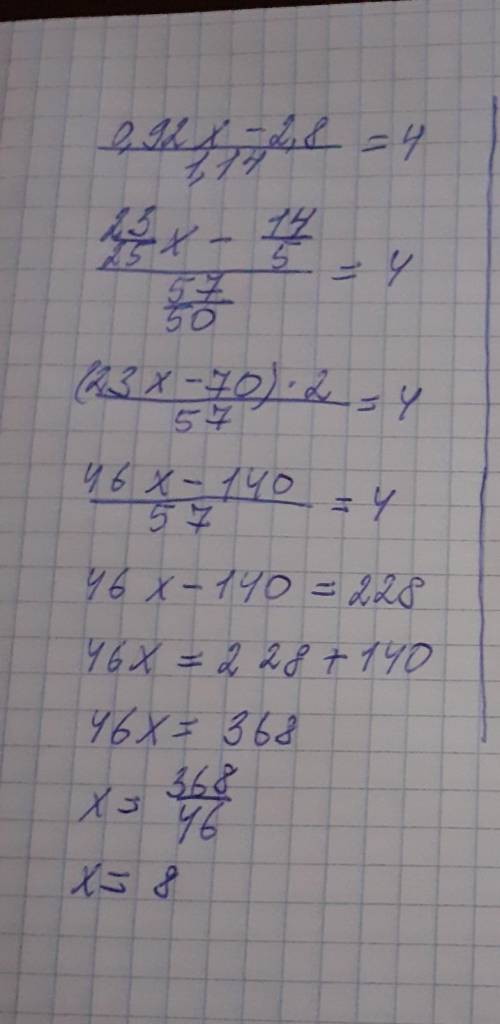 (0,92x - 2,8) / 1,14 = 4
(23/25 x - 14/5) / (57/50) = 4
(23x - 70) · 2 / 57 = 4
(46x - 140) / 57 = 4
46x - 140 = 228
46x = 228 + 140
46x = 368
x = 368/46
x = 8